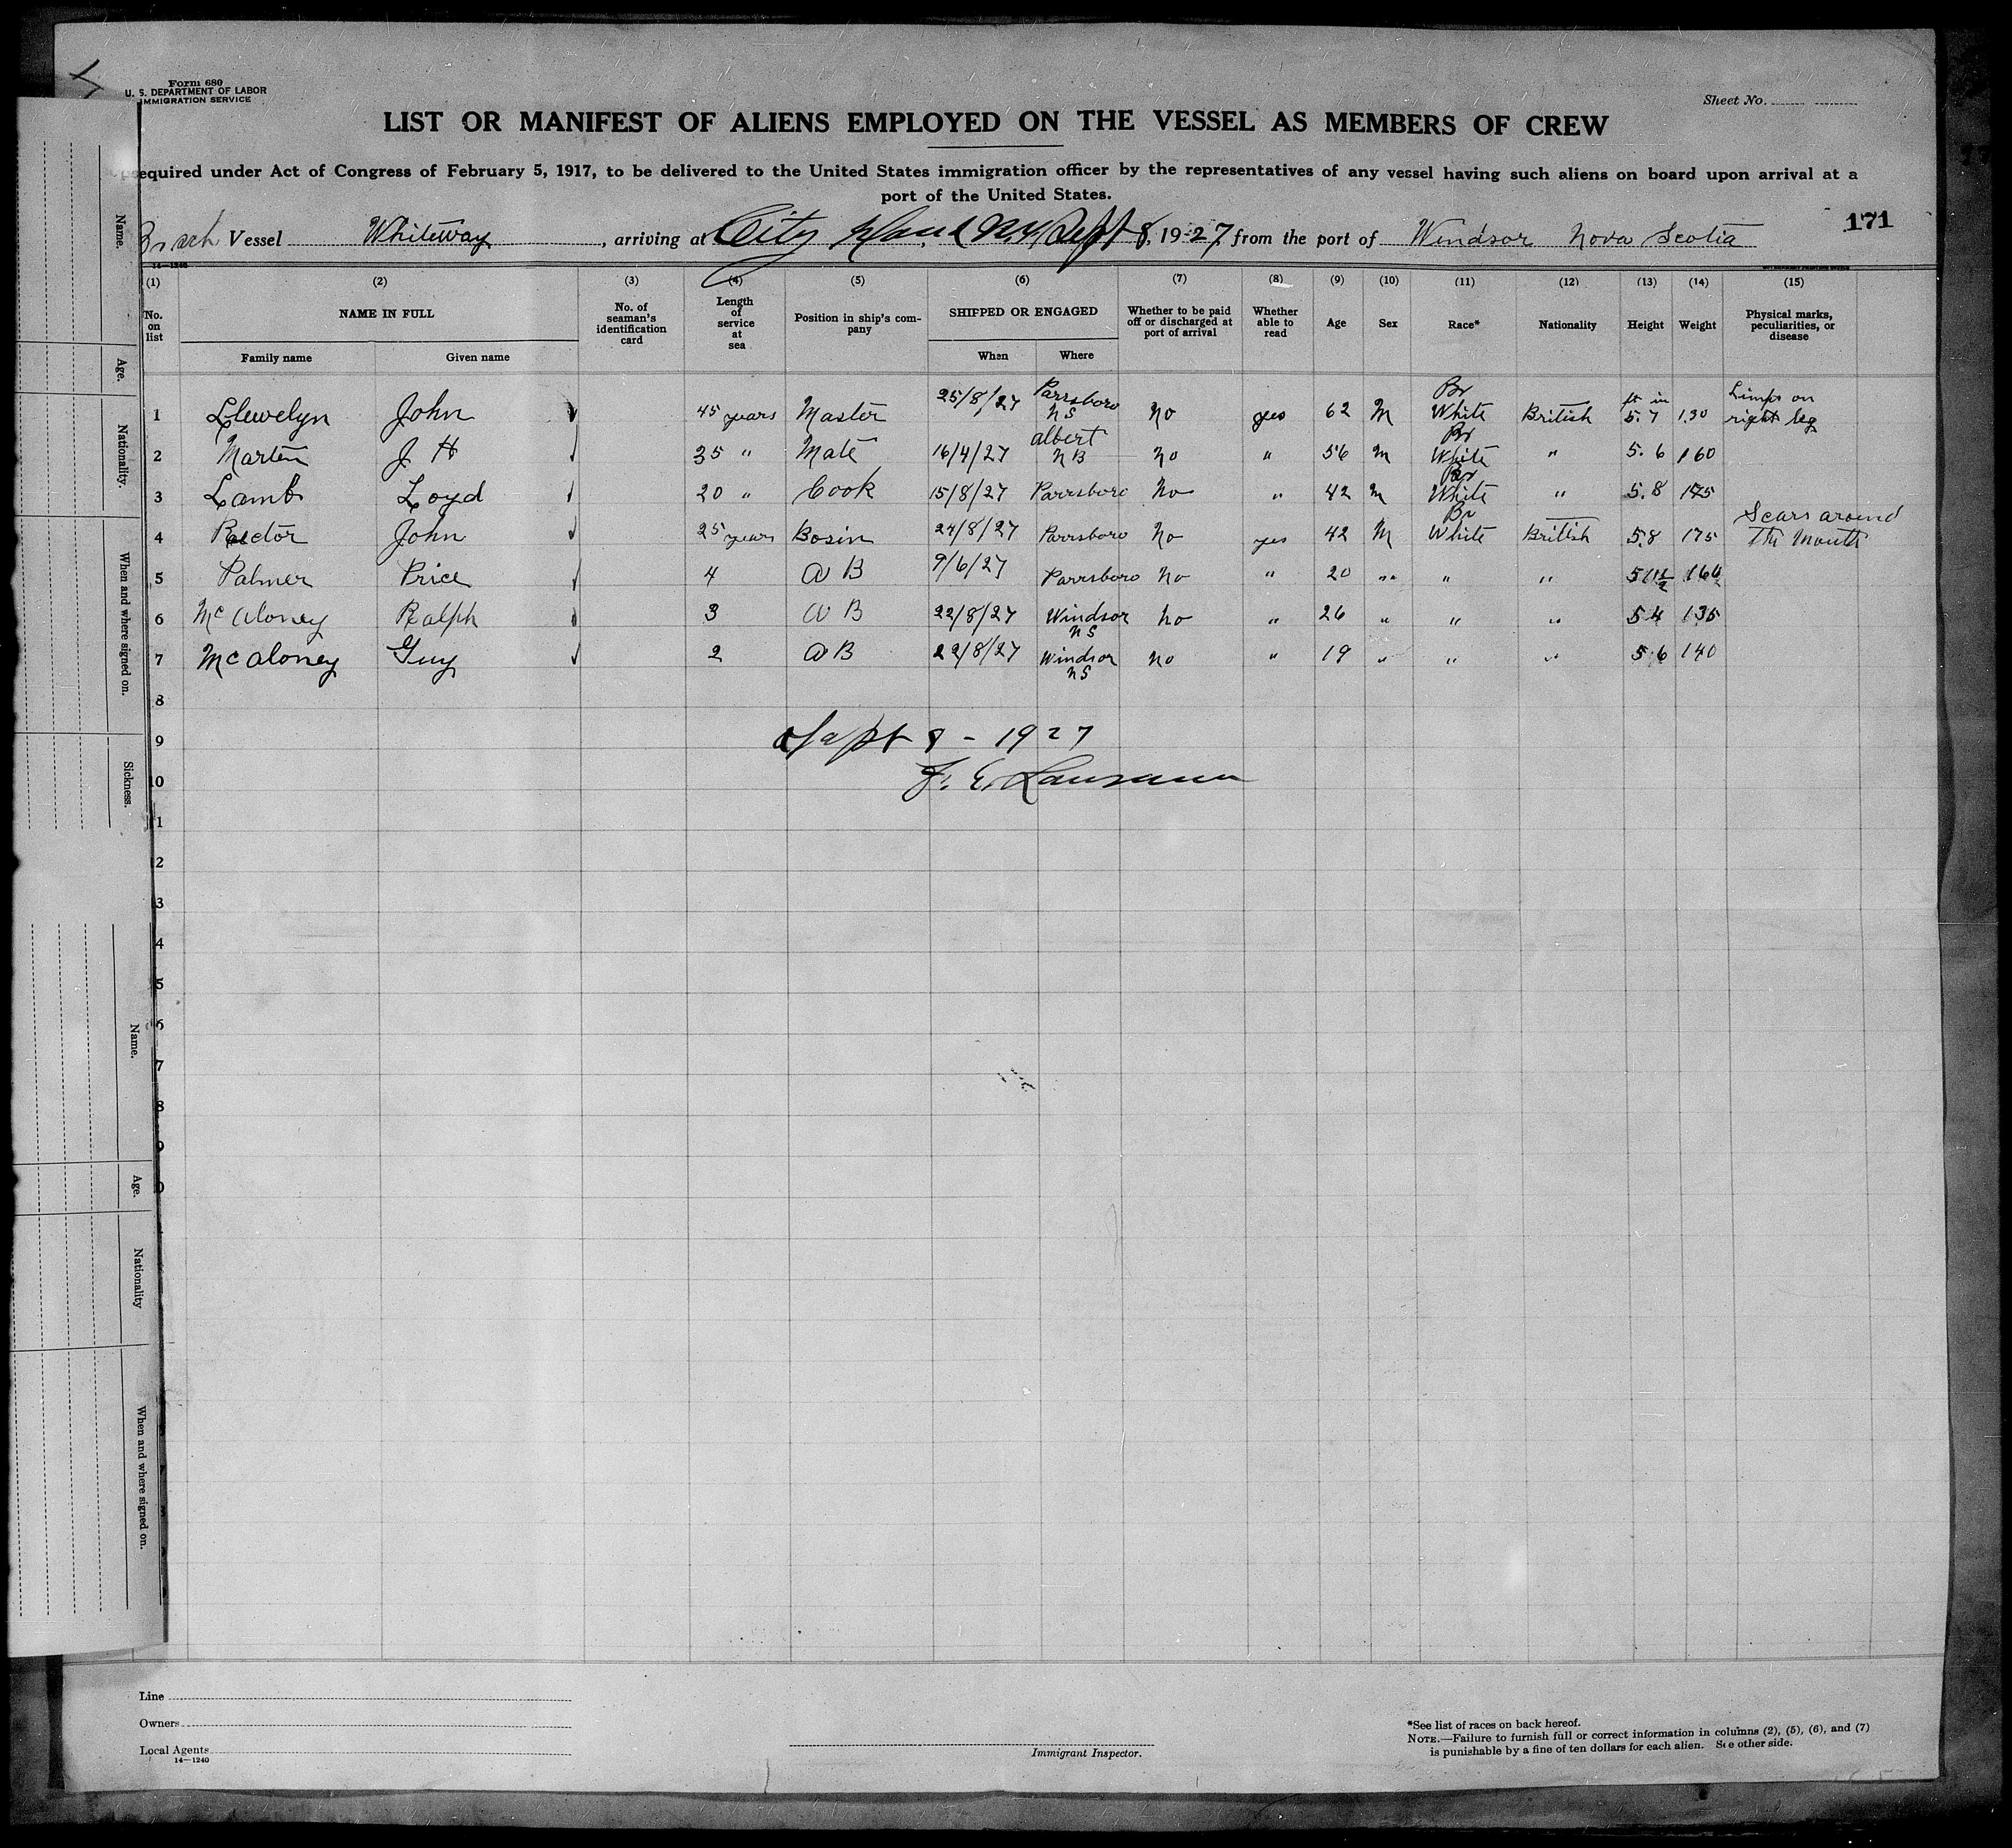 Form 680
U. S. DEPARTMENT OF LABOR
IMMIGRATION SERVICE
Sheet No.
LIST OR MANIFEST OF ALIENS EMPLOYED ON THE VESSEL AS MEMBERS OF CREW
equired under Act of Congress of February 5, 1917, to be delivered to the United States immigration officer by the representatives of any vessel having such aliens on board upon arrival at a
port of the United States.
171
Vessel Whiteway, arriving at City Island N.Y. Sept 8, 1927, from the port of Windsor Nova Scotia
14—1240
(1) (2) (3) (4) (5) (6) (7) (8) (9) (10) (11) (12) (13) (14) (15)
No. on list NAME IN FULL Family name Given name No. of seaman's identification card Length of service at sea Position in ship's company SHIPPED OR ENGAGED When Where Whether to be paid off or discharged at port of arrival Whether able to read Age Sex Race* Nationality Height Weight Physical marks, peculiarities, or disease
1 Llewelyn John 45 years Master 25/8/27 Parrsboro NS No yes 62 M Br White British ft in 5.7 130 Limps on right leg
2 Marten J H 35 " Mate 16/4/27 Albert NB No " 56 M Br White " 5.6 160
3 Lamb Loyd 20 " Cook 15/8/27 Parrsboro No " 42 M Br White " 5.8 175
4 Rector John 25 years Bosin 24/8/27 Parrsboro No yes 42 M Br White British 5.8 175 Scars around The Mouth
5 Palmer Price 4 A B 9/6/27 Parrsboro No " 20 " " " 5 11½ 166
6 McAloney Ralph 3 A B 22/8/27 Windsor NS No " 26 " " " 5 4 135
7 McAloney Guy 2 A B 22/8/27 Windsor NS No " 19 " " " 5 6 140
8
9
Sept 8 - 1927
10
1
2
3
4
5
6
7
8
9
0
Name.
Age.
Nationality.
When and where signed on.
Sickness.
Name.
Age.
Nationality
When and where signed on.
Line
Owners
Local Agents
14—1240
Immigrant Inspector.
*See list of races on back hereof.
NOTE.—Failure to furnish full or correct information in columns (2), (5), (6), and (7)
is punishable by a fine of ten dollars for each alien. See other side.